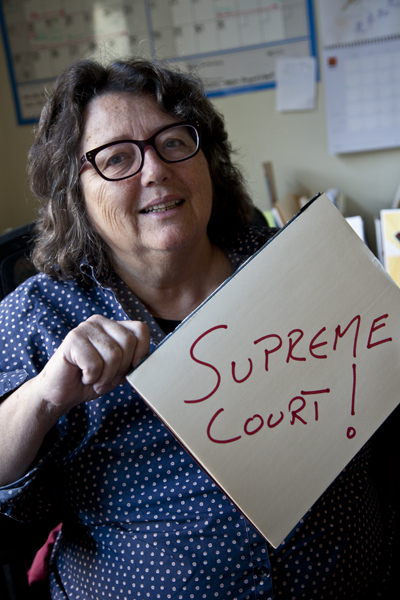 SUPREME
COURT!